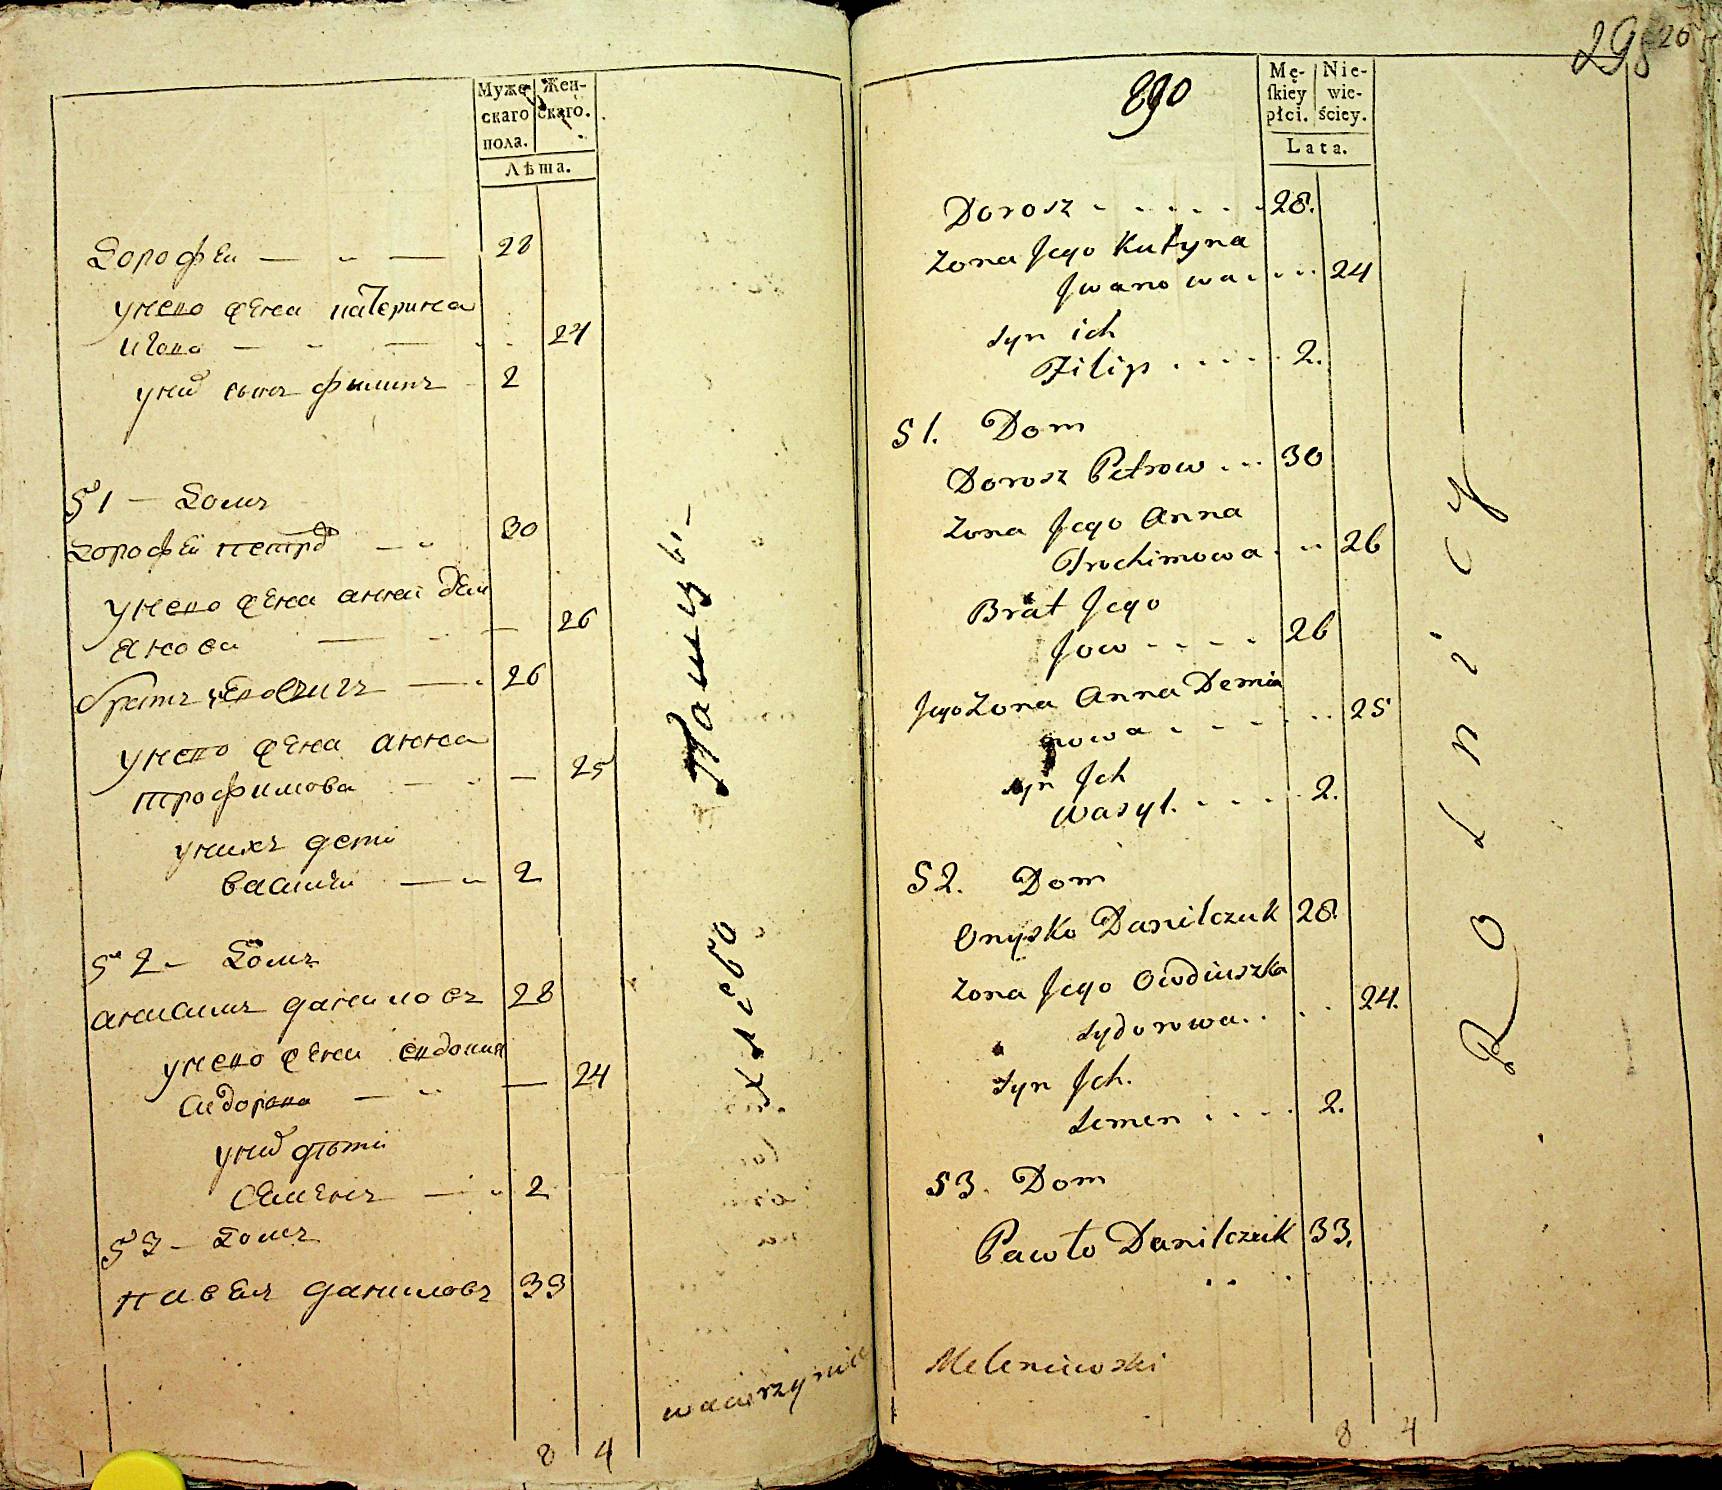 Муже-
скаго
пола.
Жен-
скаго.
Лѣта.
Дорофеи — „ — 28
у него жена катерина
24
у них сынъ филипъ 2
51 — Домъ
Дорофей петров — „ 30
у него жена анна дем
янова — „ — 26
братъ — „ 26
у него жена анна
трофимова — „ — 25
у нихъ дети
василеи — „ 2
52 — Домъ
анисимъ даниловъ 28
у него жена евдокия
сидорова — „ — 24
у них дѣти
Семенъ — „ 2
53 — Домъ
павелъ даниловъ 33
хлебо пашцы
wawrzyniec
8 4
298
26
890
Mę-
skiey
płci.
Nie-
wie-
ściey.
Lata.
Dorosz . . . . . . 28.
Zona Jego Katyna
Jwanowa . . . . 24
syn ich
Filip . . . . . 2.
51. Dom
Dorosz Petrow . . . 30
Zona Jego Anna
Trochimowa . . . 26
Brat Jego
Jow . . . . 26
Jego Zona Anna Demia
nowa . . . . . . 25
syn Jch
Wasyl . . . . . 2.
52. Dom
Onysko Danilczuk 28.
Zona Jego Owdiuszka
Sydorowa . . . . 24.
Syn Jch.
Semen . . . . 2.
53. Dom
Pawło Danilczuk 33.
Rolnicy
8 4